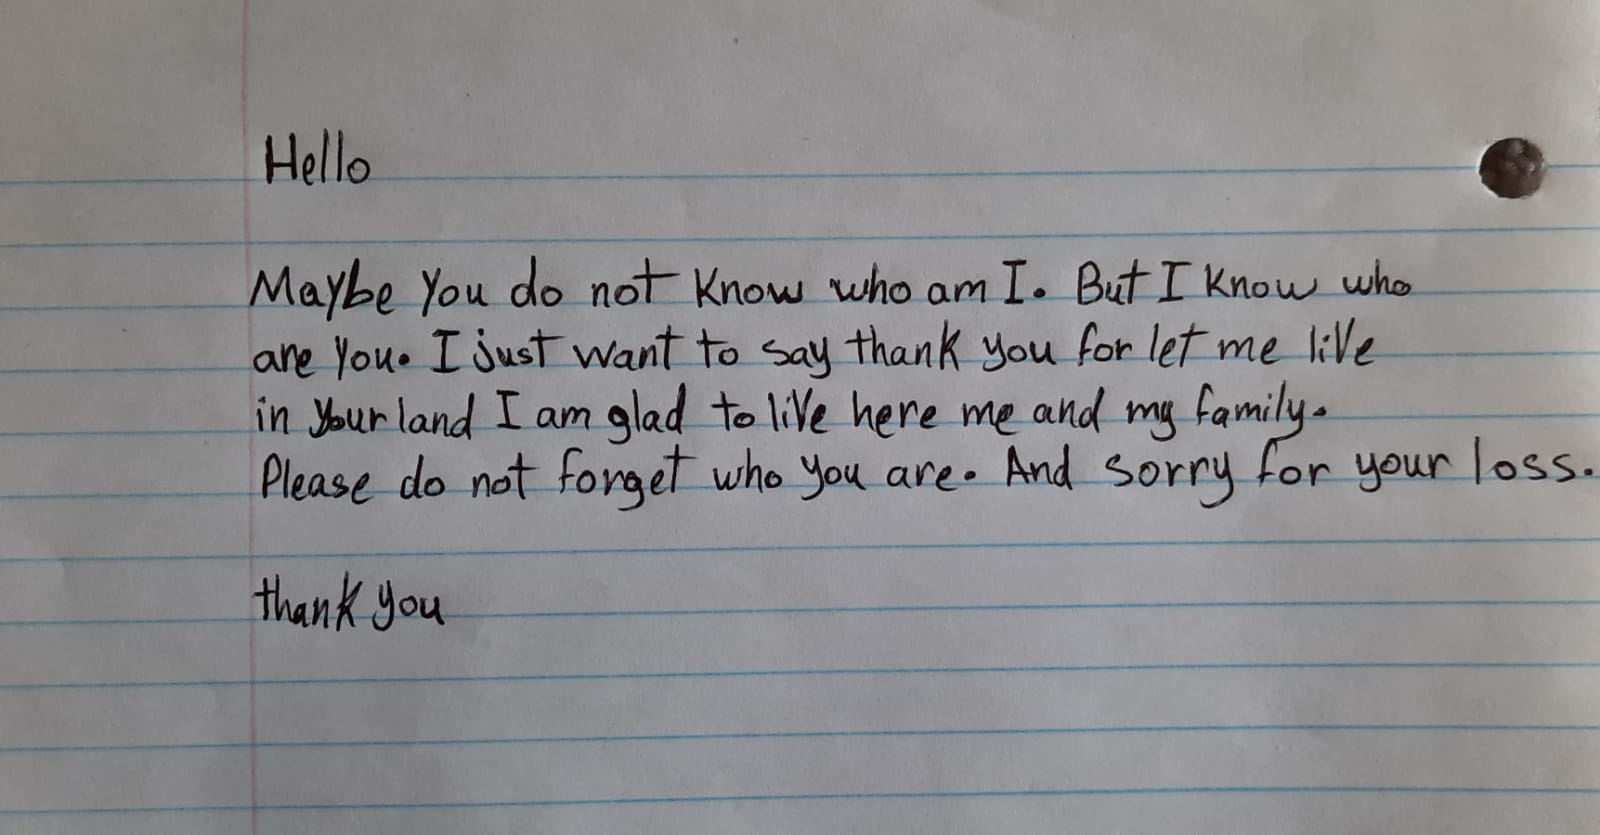 Hello
Maybe you do not know who am I. But I know who
are you. I just want to say thank you for let me live
in your land I am glad to live here me and my family.
Please do not forget who you are. And sorry for your loss.
thank you